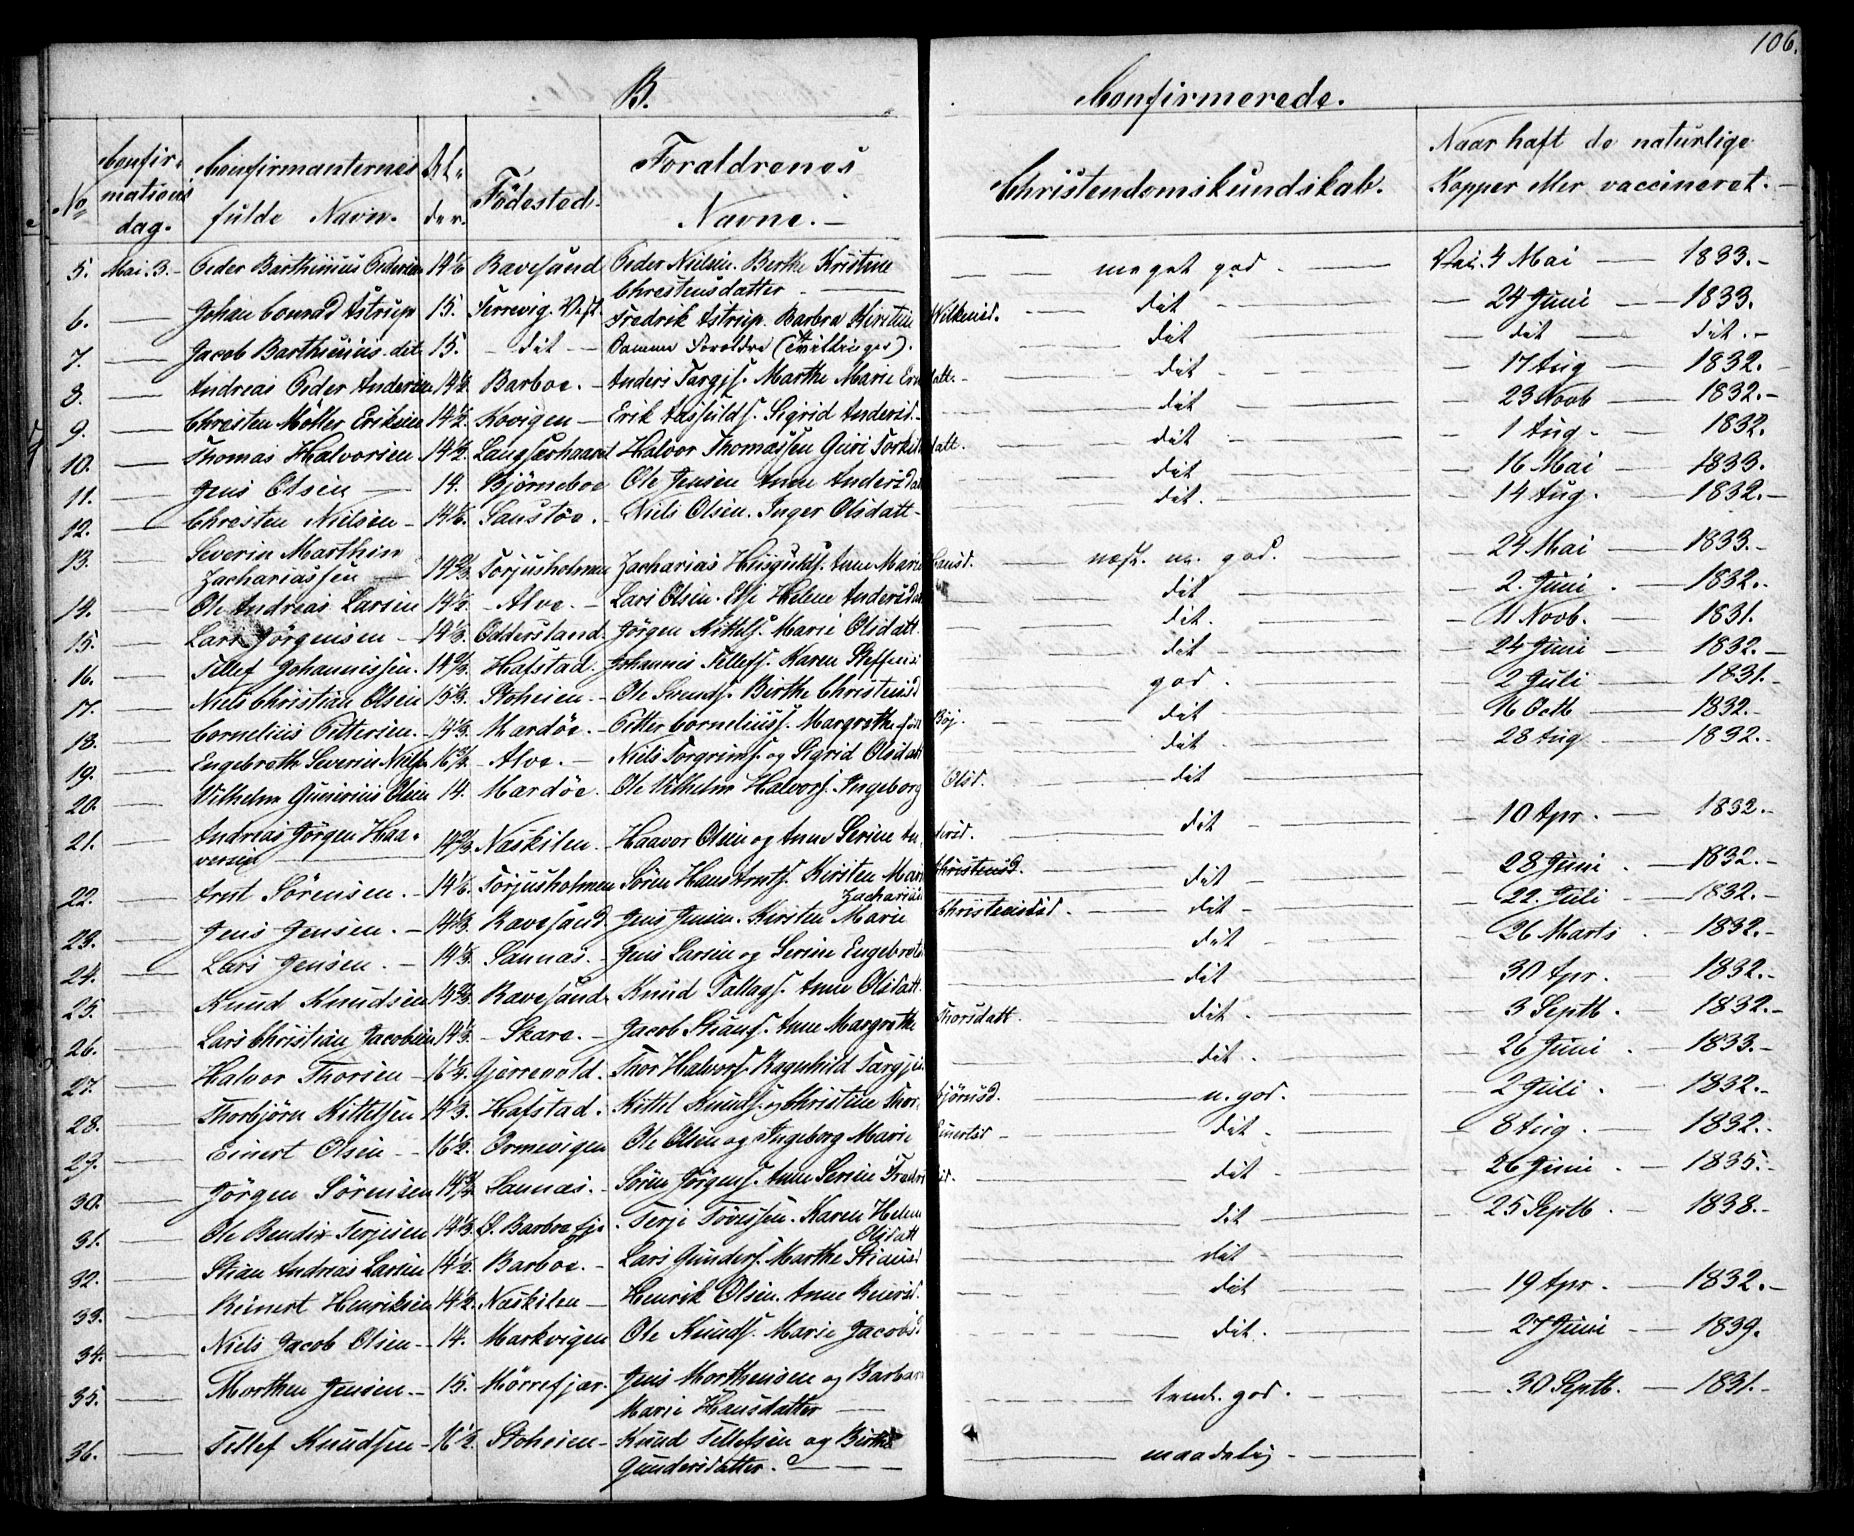 106.
B. Confirmerede.
No Confirmations dag. Confirmanternes fulde Navn. Alder. Födested. Foraldrenes Navne. Christendomskundskab. Naar haft de naturlige Kopper eller vaccineret.
5. Mai 3. Peder Barthinius Pedersen 14 1/6 Ravesand Peder Nielsen. Berthe Kristine Chrestensdatter meget god. Vac. 4 Mai 1833.
6. Johan Conrad Astrup 15. Terrevig. Vest. Fredrik Astrup. Barbra Kirstin Wilkensd. dit 24 Juni 1833.
7. Jacob Barthinius dit 15. dit Samme Foraldre (Tvillinger). dit dit dit.
8. Andreas Peder Andersen 14 1/2 Barboe. Anders Targjs. Marthe Marie datt. dit 17 Aug 1832.
9. Christen Möller Eriksen 14 1/2 Kovigen Erik Aasfulds. Sigrid Andersd. dit 23 Novb 1832.
10. Thomas Halvorsen 14 1/2 Halvor Thomassen Guri Torkildsdatt. dit 1 Aug 1832.
11. Jens Olsen 14. Björneboe Ole Jensen Anne Andersdatt dit 16 Mai 1833.
12. Chresten Nielsen 14 1/6 Sandstöe. Niels Olsen. Inger Olsdatt dit. 14 Aug. 1832.
13. Severin Marthin Zachariassen 14 2/3 Torjusholmen Zacharias Anne Marie Hansd. næst. m. god. 24 Mai 1833.
14. Ole Andreas Larsen 14 1/2 Alve. Lars Olsen. Else Helene Andersdatt dit 2. Juni 1832.
15. Lars Jörgensen 14 1/3 Oddersland. Jörgen Kittels. Marie Olsdatt. dit. 11 Novb. 1831.
16. Tellef Johannessen. 14 2/3 Hafstad. Johannes Tellefs. Karen Steffens dit 24 Juni 1832.
17. Niels Christian Olsen 15 1/3 Stoheien Ole Svends. Birthe Christensd god. 2 Juli 1831.
18. Cornelius Pettersen. 14 1/3 Mardöe. Petter Corneliuss. Margrethe föd Böj. dit 16 Octb 1832.
19. Engebreth Severin Niels. 16 1/2 Alve. Niels Torgrims. og Sigrid Olsdatt dit 28 Aug 1832.
20. Vilhelm Olsen 14. Mardöe. Ole Vilhelm Halvors. Ingeborg Olsd. dit
21. Andreas Jörgen Haaversen 14 2/3 Næskilen. Haavor Olsen og Anne Serine Andersd. dit 10 Apr. 1832.
22. Arnt Sörensen. 14 1/6 Torjusholmen Sören Hans Arnts. Kirsten Marie Christensd. Zachariasd dit 28 Juni 1832.
23. Jens Jensen. 14 1/3 Ravesand. Jens Jensen. Kirsten Marie Christensdd. dit 22. Juli 1832.
24. Lars Jensen. 14 1/3 Sannæs. Jens Larsen og Serine Engebretsd dit 26 Marts 1832.
25. Knud Knudsen 14 2/3 Ravesand. Knud Tallags. Anne Olsdatt. dit 30 Apr. 1832.
26. Lars Christian Jacobsen 14 1/3 Skare. Jacob Stians. Anne Margrethe Thorsdatt. dit. 3 Septb. 1832.
27. Halvor Thorsen 16 1/2 Gjerrevold. Thor Halvors. Ragnhild Targjes dit. 26 Juni 1833.
28. Thorbjörn Kittelsen 14 1/3 Hafstad. Kittel Knuds. og Christine Thorbjörnsd. m. god. 2 Juli 1832.
29. Einert Olsen 16 1/2 Ormevigen Ole Olsen og Ingeborg Marie Einertsd dit 8 Aug. 1832.
30. Jörgen Sörensen 14 3/4 Sannæs. Sören Jörgens. Anne Serine dit 26 Juni 1835.
31. Ole Bendix Terjesen 14 1/3 S. Barbrofjr. Terje Toressen. Karen Helene Olsdatt dit 25 Septb. 1838.
32. Stian Andreas Larsen 14 1/2 Barboe. Lars Gunders. Marthe Stiansd dit
33. Reinert Henriksen 14 1/2 Næskilen Henrik Olsen. Anne Reiersd. dit 19 Apr. 1832.
34. Niels Jacob Olsen 14. Markvigen Ole Knuds. Marie Jacobsd dit. 27 Juni 1839.
35. Morthen Jensen. 15. Mörrefjær. Jens Morthensen og Barbara Marie Hansdatter teml. god. 30 Septb. 1831.
36. Tellef Knudsen 16 1/2 Stoheien Knud Tellefsen og Birthe Gundersdatter. maadelig